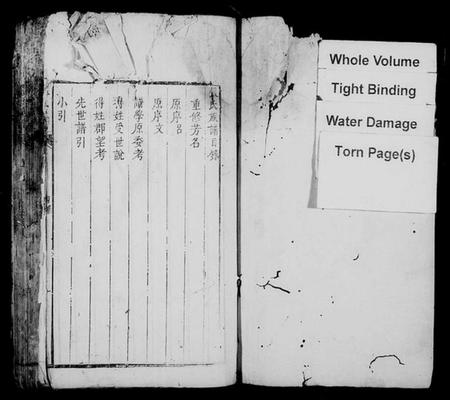 氏族譜目錄
重修芳名
原序呂
原序文
譜學原委考
得姓受世說
得姓郡望考
先世譜引
小引
Whole Volume
Tight Binding
Water Damage
Torn Page(s)